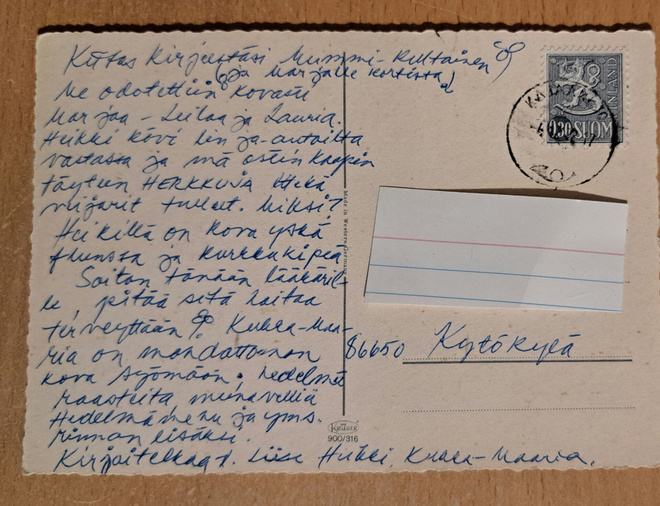 Kiitos Kirjeestäsi Mummi-Kultainen
(ja Marjalle kortista)
Me odotettiin kovasti
Marjaa - Leilaa ja Lauria.
Heikki kävi linja-autoilta
vastassa ja mä ostin kaapin
täyteen HERKKUJA
tulleet. Miksi?
Heikillä on kova yskä
flunssa ja kurkku kipeä
Soitan tänään lääkäril-
le, pitää sitä hoitaa
terveyttään. Kukka-Maa-
ria on mahdottoman
kova syömään. Hedelmä
raasteita munavelliä
Hedelmämehu ja yms.
rinnan lisäksi.
Kirjoitelkaa. Liisa Heikki, Kukka-Maaria.
Made in Western-Germany
Krüger
900/316
0,30 SUOMI
FINLAND
86650 Kytökylä